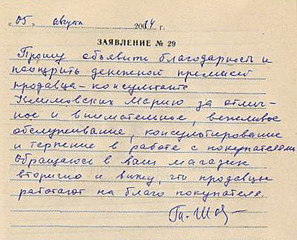 „05" августа 2014 г.
ЗАЯВЛЕНИЕ № 29
Прошу объявить благодарность и
поощрить денежной премией
продавца-консультанта
Марию за отлич-
ное и внимательное, вежливое
обслуживание, консультирование
и терпение в работе с покупателями
обращаюсь в ваш магазин
вторично и вижу, что продавцы
работают на благо покупателя.